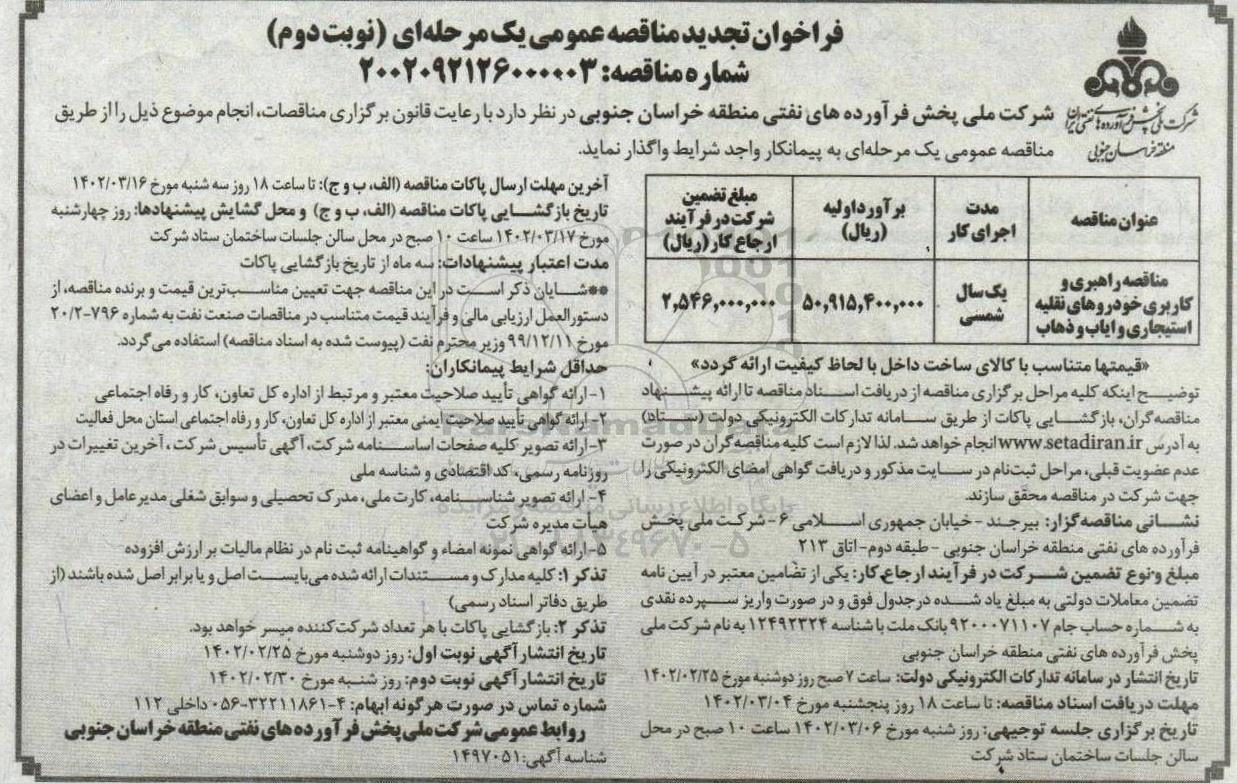 فراخوان تجدید مناقصه عمومی یک مرحله‌ای (نوبت دوم)
شماره مناقصه: ۲۰۰۲۰۹۲۱۲۶۰۰۰۰۰۳
شرکت ملی پخش فرآورده‌های نفتی ایران
منطقه خراسان جنوبی
شرکت ملی پخش فرآورده های نفتی منطقه خراسان جنوبی در نظر دارد با رعایت قانون برگزاری مناقصات، انجام موضوع ذیل را از طریق
مناقصه عمومی یک مرحله‌ای به پیمانکار واجد شرایط واگذار نماید.
عنوان مناقصه
مدت اجرای کار
برآورد اولیه (ریال)
مبلغ تضمین شرکت در فرآیند ارجاع کار (ریال)
مناقصه راهبری و کاربری خودروهای نقلیه استیجاری و ایاب و ذهاب
یک سال شمسی
۵۰,۹۱۵,۴۰۰,۰۰۰
۲,۵۴۶,۰۰۰,۰۰۰
«قیمتها متناسب با کالای ساخت داخل با لحاظ کیفیت ارائه گردد»
توضیح اینکه کلیه مراحل برگزاری مناقصه از دریافت اسناد مناقصه تا ارائه پیشنهاد
مناقصه‌گران، بازگشایی پاکات از طریق سامانه تدارکات الکترونیکی دولت (ستاد)
به آدرس www.setadiran.ir انجام خواهد شد. لذا لازم است کلیه مناقصه‌گران در صورت
عدم عضویت قبلی، مراحل ثبت‌نام در سایت مذکور و دریافت گواهی امضای الکترونیکی را
جهت شرکت در مناقصه محقق سازند.
نشانی مناقصه‌گزار: بیرجند - خیابان جمهوری اسلامی ۶ - شرکت ملی پخش
فرآورده های نفتی منطقه خراسان جنوبی - طبقه دوم - اتاق ۲۱۳
مبلغ و نوع تضمین شرکت در فرآیند ارجاع کار: یکی از تضامین معتبر در آیین نامه
تضمین معاملات دولتی به مبلغ یاد شده در جدول فوق و در صورت واریز سپرده نقدی
به شماره حساب جام ۹۲۰۰۰۷۱۱۰۷ بانک ملت با شناسه ۱۲۴۹۲۳۲۴ به نام شرکت ملی
پخش فرآورده های نفتی منطقه خراسان جنوبی
تاریخ انتشار در سامانه تدارکات الکترونیکی دولت: ساعت ۷ صبح روز دوشنبه مورخ ۱۴۰۲/۰۲/۲۵
مهلت دریافت اسناد مناقصه: تا ساعت ۱۸ روز پنجشنبه مورخ ۱۴۰۲/۰۳/۰۴
تاریخ برگزاری جلسه توجیهی: روز شنبه مورخ ۱۴۰۲/۰۳/۰۶ ساعت ۱۰ صبح در محل
سالن جلسات ساختمان ستاد شرکت
آخرین مهلت ارسال پاکات مناقصه (الف، ب و ج): تا ساعت ۱۸ روز سه شنبه مورخ ۱۴۰۲/۰۳/۱۶
تاریخ بازگشایی پاکات مناقصه (الف، ب و ج) و محل گشایش پیشنهادها: روز چهارشنبه
مورخ ۱۴۰۲/۰۳/۱۷ ساعت ۱۰ صبح در محل سالن جلسات ساختمان ستاد شرکت
مدت اعتبار پیشنهادات: سه ماه از تاریخ بازگشایی پاکات
**شایان ذکر است در این مناقصه جهت تعیین مناسب‌ترین قیمت و برنده مناقصه، از
دستورالعمل ارزیابی مالی و فرآیند قیمت متناسب در مناقصات صنعت نفت به شماره ۷۹۶-۲۰/۲
مورخ ۹۹/۱۲/۱۱ وزیر محترم نفت (پیوست شده به اسناد مناقصه) استفاده می‌گردد.
حداقل شرایط پیمانکاران:
۱- ارائه گواهی تأیید صلاحیت معتبر و مرتبط از اداره کل تعاون، کار و رفاه اجتماعی
۲- ارائه گواهی تأیید صلاحیت ایمنی معتبر از اداره کل تعاون، کار و رفاه اجتماعی استان محل فعالیت
۳- ارائه تصویر کلیه صفحات اساسنامه شرکت، آگهی تأسیس شرکت، آخرین تغییرات در
روزنامه رسمی، کد اقتصادی و شناسه ملی
۴- ارائه تصویر شناسنامه، کارت ملی، مدرک تحصیلی و سوابق شغلی مدیرعامل و اعضای
هیأت مدیره شرکت
۵- ارائه گواهی نمونه امضاء و گواهینامه ثبت نام در نظام مالیات بر ارزش افزوده
تذکر ۱: کلیه مدارک و مستندات ارائه شده می‌بایست اصل و یا برابر اصل شده باشند (از
طریق دفاتر اسناد رسمی)
تذکر ۲: بازگشایی پاکات با هر تعداد شرکت‌کننده میسر خواهد بود.
تاریخ انتشار آگهی نوبت اول: روز دوشنبه مورخ ۱۴۰۲/۰۲/۲۵
تاریخ انتشار آگهی نوبت دوم: روز شنبه مورخ ۱۴۰۲/۰۲/۳۰
شماره تماس در صورت هرگونه ابهام: ۴-۳۲۲۱۱۸۶۱-۰۵۶ داخلی ۱۱۲
روابط عمومی شرکت ملی پخش فرآورده های نفتی منطقه خراسان جنوبی
شناسه آگهی: ۱۴۹۷۰۵۱
پایگاه اطلاع رسانی مناقصه و مزایده
۰۲۱-۸۸۳۴۹۶۷۰-۵